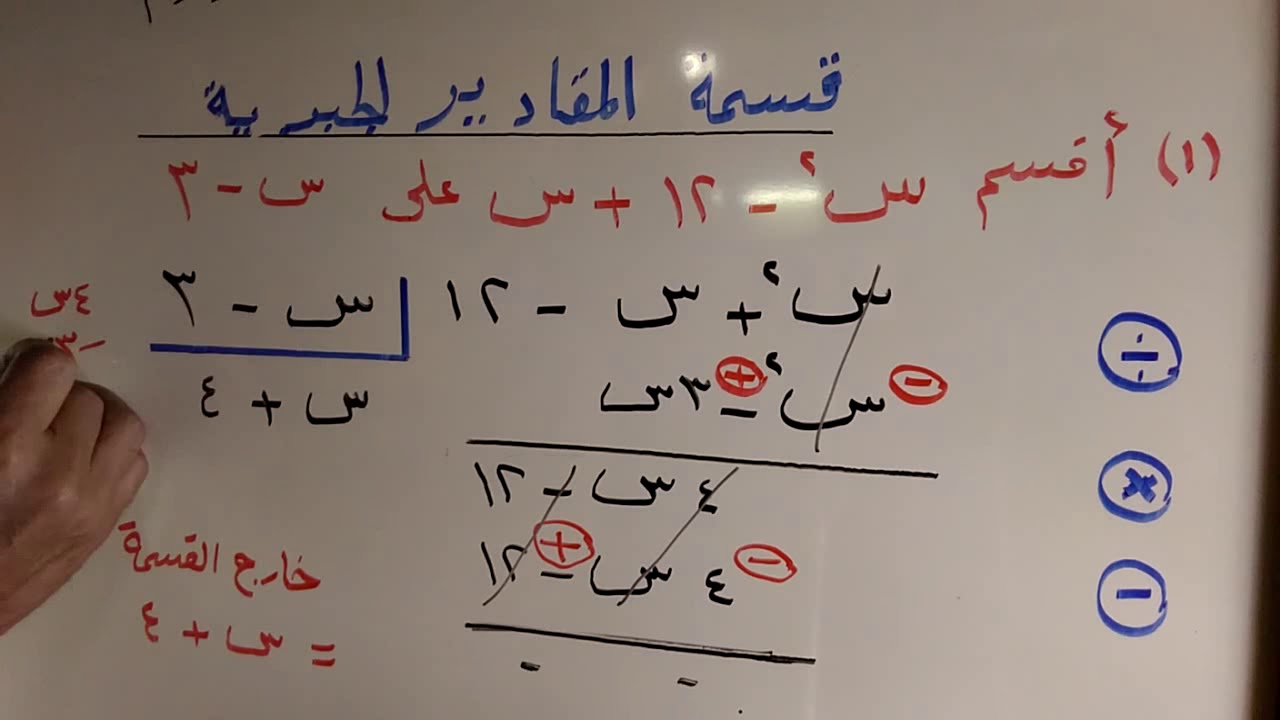 قسمة المقادير الجبرية
(١) أقسم س٢ - ١٢ + س على س - ٣
س٢ + س - ١٢
س - ٣
س + ٤
س٢ - ٣س
⊖ ⊕
٤ س - ١٢
٤ س - ١٢
⊖ ⊕
- -
÷
×
-
٤س
-٣
خارج القسمة
= س + ٤